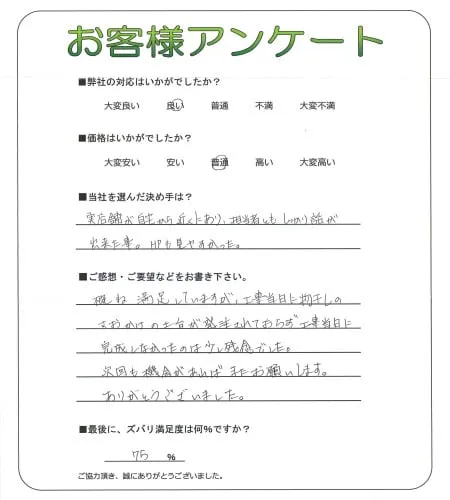 お客様アンケート
■弊社の対応はいかがでしたか？
大変良い 良い 普通 不満 大変不満
■価格はいかがでしたか？
大変安い 安い 普通 高い 大変高い
■当社を選んだ決め手は？
実店舗が自宅から近くにあり、担当者ともしっかり話が
出来た事。HPも見やすかった。
■ご感想・ご要望などをお書き下さい。
概ね満足していますが、工事当日に物干しの
さおかけの土台が発注されておらず工事当日に
完成しなかったのは少し残念でした。
次回も機会があればまたお願いします。
ありがとうございました。
■最後に、ズバリ満足度は何％ですか？
75 ％
ご協力頂き、誠にありがとうございました。